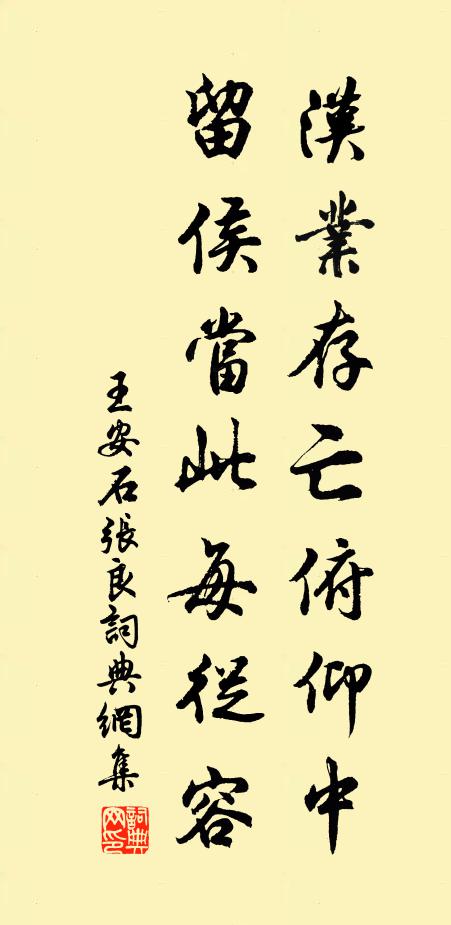 漢業存亡俯仰中
留侯當此每從容
王安石張良詞典網集
詞典网印